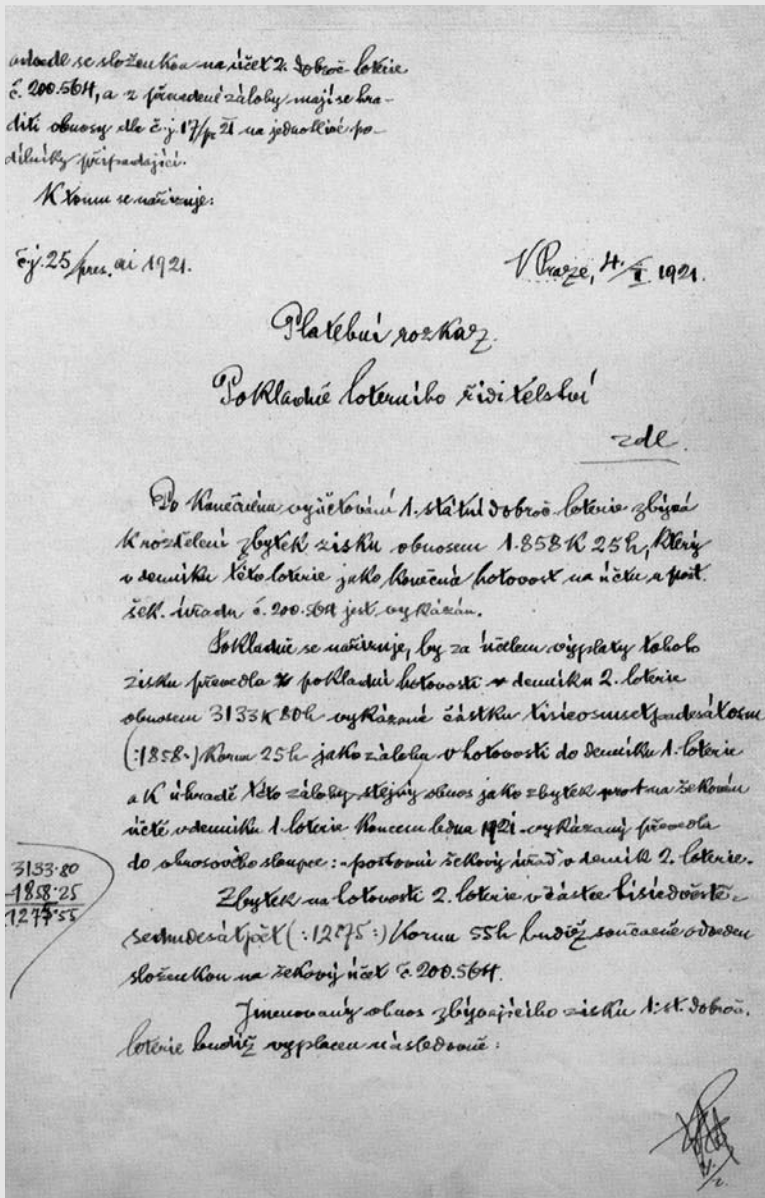 odvede se složenkou na účet 2. dobroč loterie
č. 200.564, a z převedené zálohy mají se hra-
diti obnosy dle č.j. 17/pr 21 na jednotlivé po-
dílníky připadající.
K tomu se nařizuje:
čj. 25/pres. ai 1921.
V Praze, 4./I. 1921.
Platební rozkaz.
Pokladně loterního ředitelství
zde.
Po konečném vyúčtování 1. státní dobroč. loterie zbývá
k rozdělení zbytek zisku obnosem 1.858 K 25 h, který
v denníku této loterie jako konečná hotovost na účtu u pošt.
šek. úřadu č. 200.564 jest vykázán.
Pokladně se nařizuje, by za účelem výplaty tohoto
zisku převedla z pokladní hotovosti v denníku 2. loterie
obnosem 3133 K 80 h vykázané částku tisícosmsetpadesátosm
(:1858:) Korun 25 h jako zálohu v hotovosti do denníku 1. loterie
a k úhradě této zálohy stejný obnos jako zbytek na šekovém
účtě v denníku 1. loterie koncem ledna 1921 vykázaný převedla
do obnosového sloupce: poštovní šekový úřad v denník 2. loterie.
3133·80
1858·25
1275·55
Zbytek na hotovosti 2. loterie v částce tisícdvěstě-
sedmdesátpět (:1275:) Korun 55 h budiž současně odveden
složenkou na šekový účet č. 200.564.
Jmenovaný obnos zbývajícího zisku 1. st. dobroč.
loterie budiž vyplacen následovně: